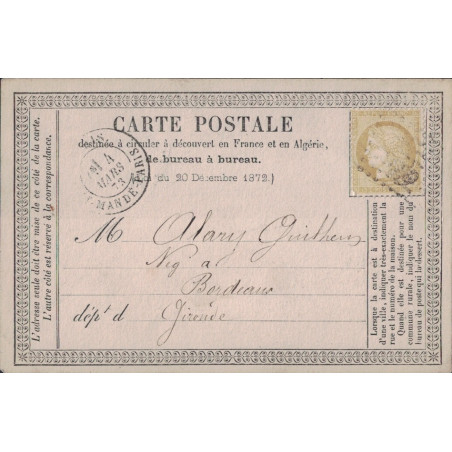 CARTE POSTALE
destinée à circuler à découvert en France et en Algérie,
de bureau à bureau.
(Loi du 20 Décembre 1872.)
MARS
73
ST-MANDÉ-PARIS
M Alary
Nég à
Bordeaux
dépt d Gironde
L'adresse seule doit être mise de ce côté de la carte.
L'autre côté est réservé à la correspondance.
Lorsque la carte est à destination
d'une ville, indiquer très-exactement la
rue et le numéro de la maison.
Quand elle est destinée pour une
commune rurale, indiquer le nom du
bureau de poste qui la dessert.